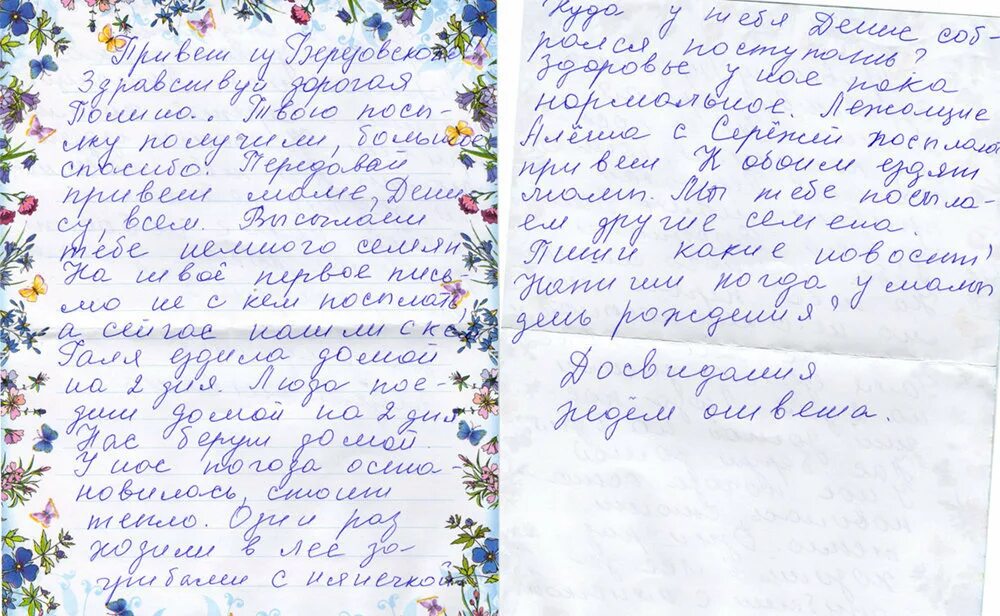 Привет из Березовского!
Здравствуй дорогая
Полина. Твою посы-
лку получили, большое
спасибо. Передовай
привет маме, Дени
су всем. Высылаем
тебе немного семян
На твоё первое пись-
мо не с кем посылать
а сейчас нашли с кем
Галя ездила домой
на 2 дня. Люда пое-
дит домой на 2 дня
Нас берут домой.
У нас погода оста-
новилась, стоит
тепло. Один раз
ходили в лес за-
грибами с нянечкой
Куда у тебя Денис соб-
рался поступать?
Здоровье у нас пока
нормальное. Лежащие
Алёша с Серёжей посылают
привет К обоим ездят
мамы. Мы тебе посыла-
ем другие семена.
Пиши какие новости!
Напиши когда у мамы
день рождения?
Досвидания
ждём ответа.